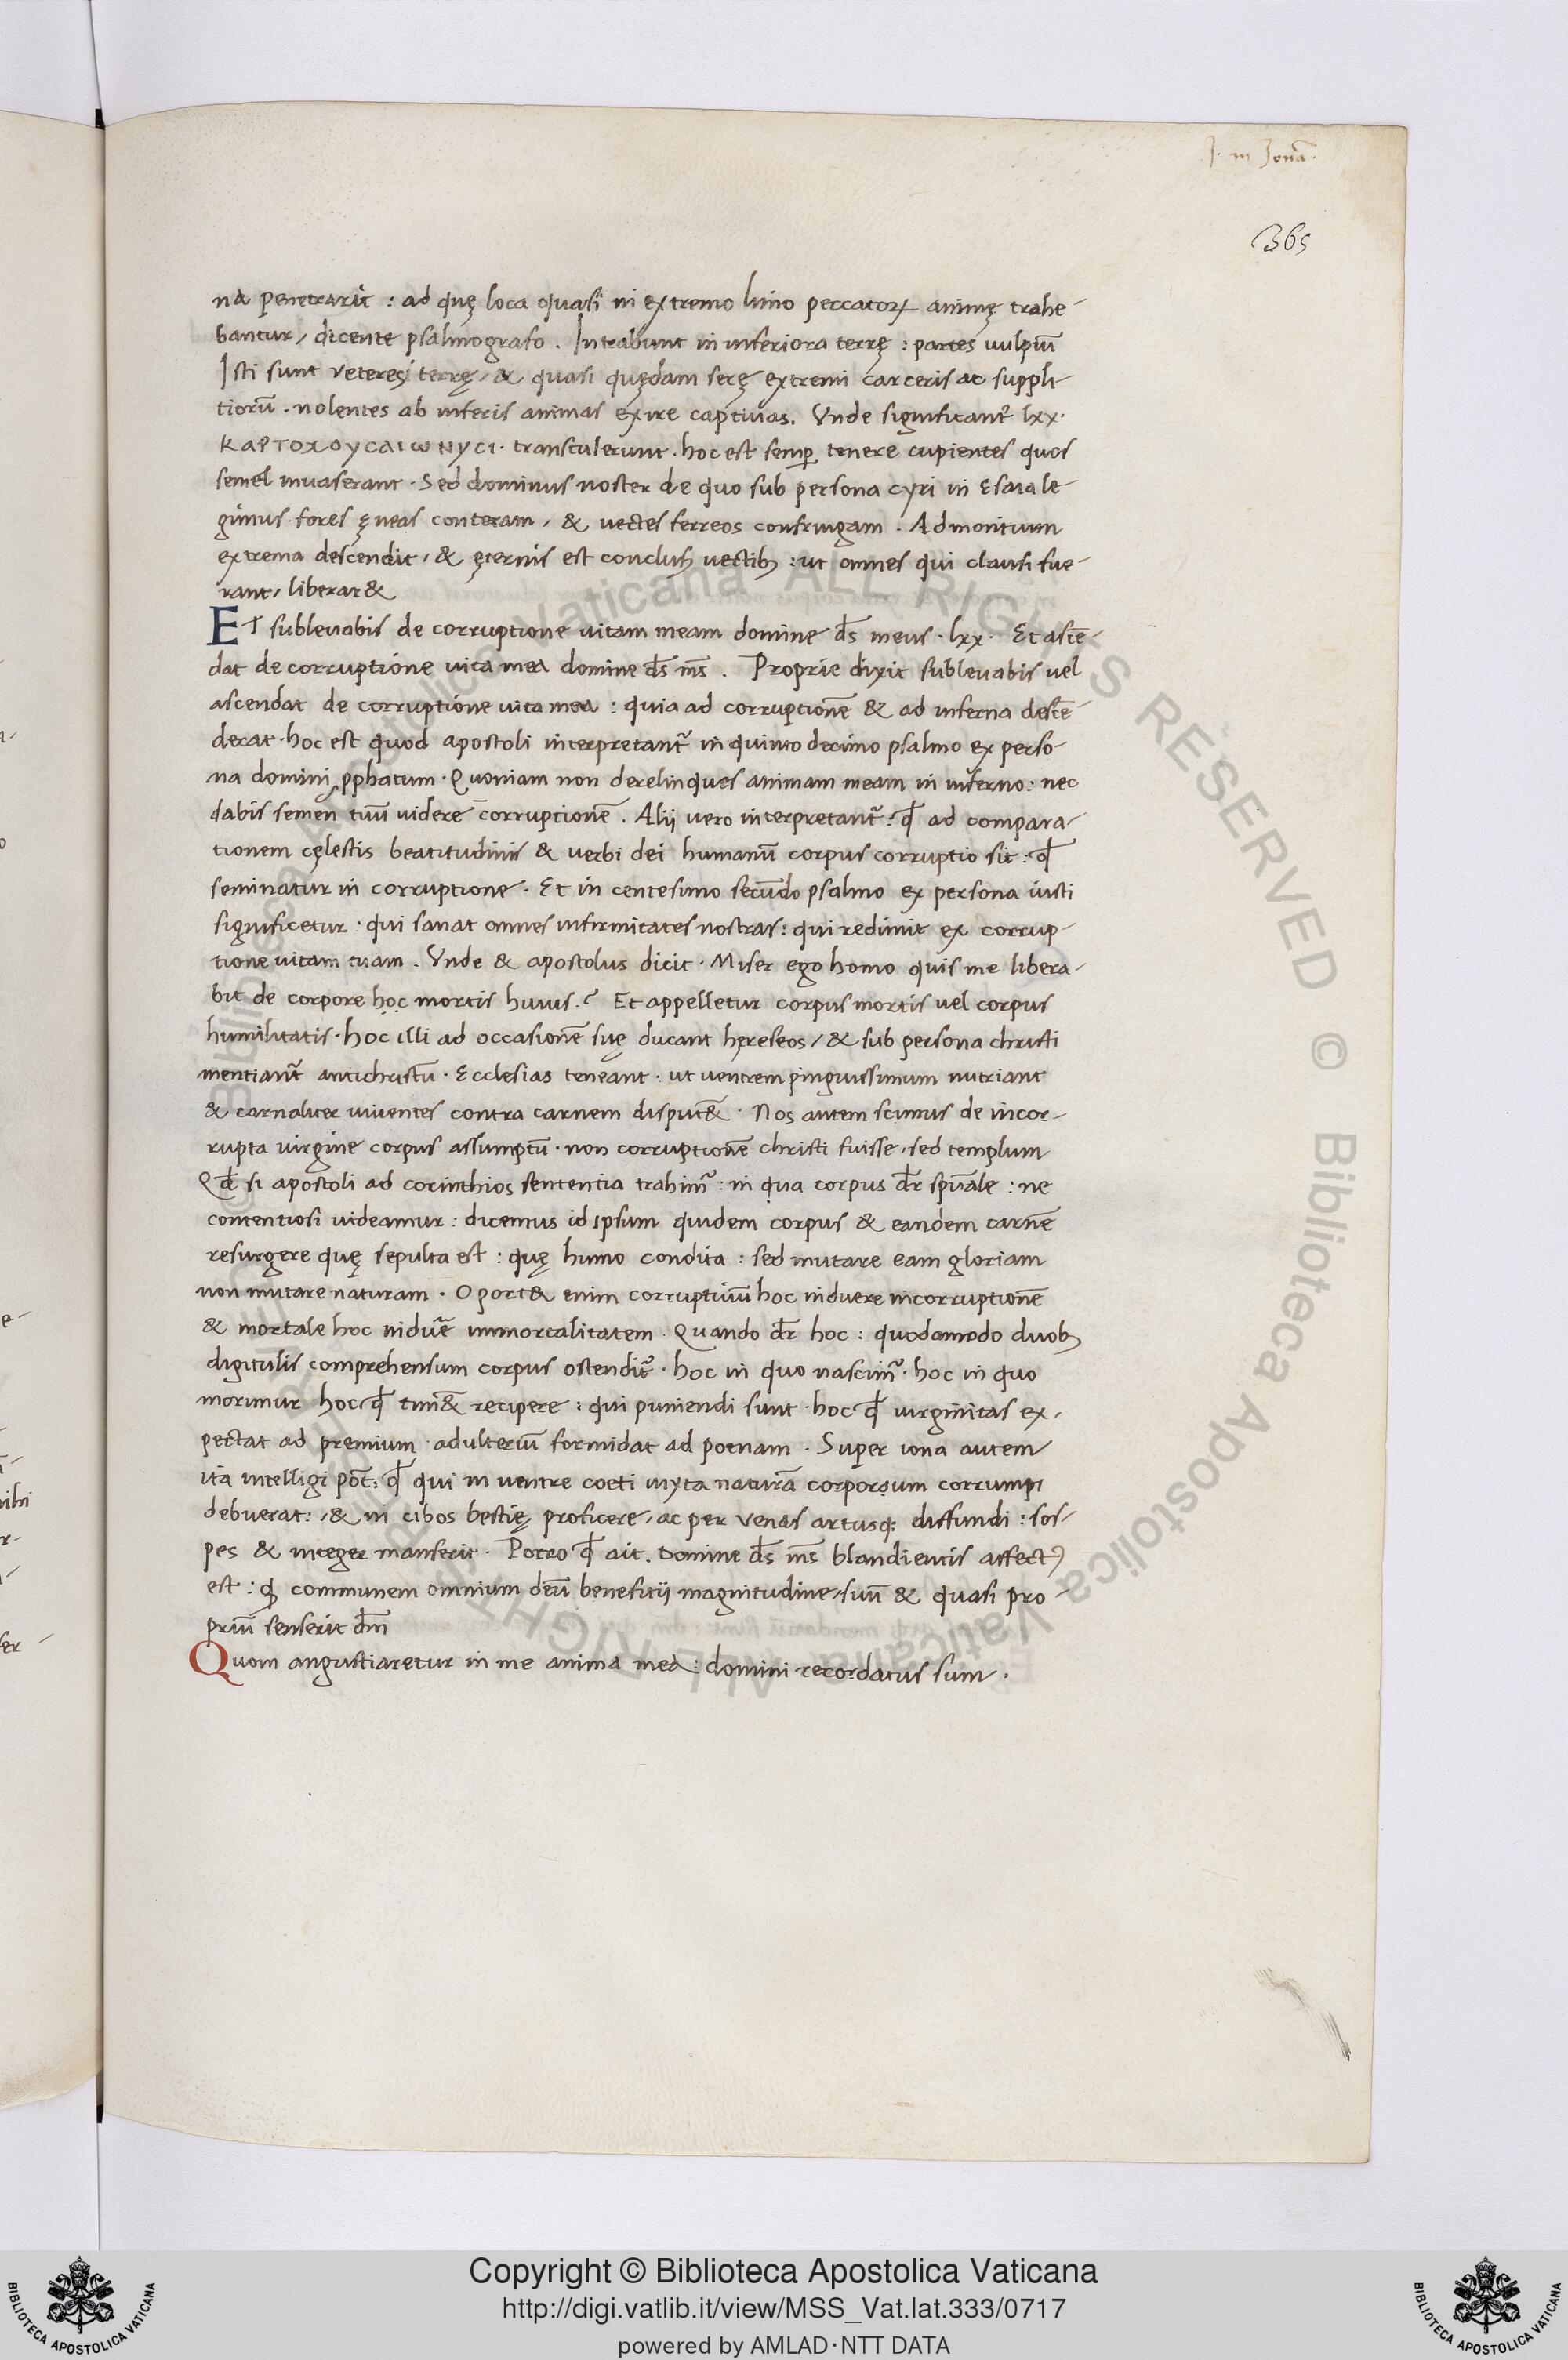 J. in Jonā.
365
na penetrarit : ad quę loca quasi in extremo limo peccatoꝝ animę trahe-
bantur, dicente psalmografo. Intrabunt in inferiora terrę : partes uulpiū
Isti sunt veteresi terrę, & quasi quędam serę extremi carceris ac suppli-
tiorū. nolentes ab inferis animas exire captiuas. Vnde significant᷑ lxx.
ΚΑΡΤΟΧΟΥCΑΙωΝΥCΙ. transtulerunt. hoc est semp̱ tenere cupientes quos
semel inuaserant. Sed dominus noster de quo sub persona cyri in Esaia le-
gimus. fores ęneas conteram, & uectes ferreos confringam. Ad montium
extrema descendit, & ęternis est conclusꝰ uectibꝫ : ut omnes qui clausi fue-
rant, liberar&
ET subleuabis de corruptione uitam meam domine d̄s meus. lxx. Et ascē-
dat de corruptione uita mea domine d̄s m̄s. Proprie dixit subleuabis vel
ascendat de corruptione uita mea : quia ad corruptionē & ad inferna descē-
derat. hoc est quod apostoli interpretant᷑ in quinto decimo psalmo ex perso-
na domini ꝓphatum. Quoniam non derelinques animam meam in inferno: nec
dabis semen tuū videre corruptionē. Alij uero interpretant᷑: qđ ad compara-
tionem cęlestis beatitudinis & uerbi dei humanū corpus corruptio sit: qđ
seminatur in corruptione. Et in centesimo secūdo psalmo ex persona iusti
significetur. qui sanat omnes infirmitates nostras: qui redimit ex corrup-
tione uitam tuam. Vnde & apostolus dicit. Miser ego homo quis me libera-
bit de corpore học mortis huius.? Et appelletur corpus mortis uel corpus
humilitatis. hoc illi ad occasionē suę ducant hęreseos, & sub persona christi
mentiant᷑ antichristū. Ecclesias teneant. ut uentrem pinguissimum nutriant
& carnaliter uiuentes contra carnem disput&̄. Nos autem scimus de incor-
rupta virgine corpus assumptū. non corruptionē christi fuisse, sed templum
Qđ si apostoli ad corinthios sententia trahim᷑: in qua corpus dr̄ spūale : ne
contentiosi uideamur : dicemus id ipsum quidem corpus & eandem carnē
resurgere quę sepulta est : quę humo condita : sed mutare eam gloriam
non mutare naturam. Oport& enim corruptiuū hoc induere incorruptionē
& mortale hoc induē̄ immortalitatem. Quando dr̄ hoc : quodamodo duobꝫ
digitulis comprehensum corpus ostendit᷑. hoc in quo nascim᷑. hoc in quo
morimur hoc qđ tim&̄ recipere : qui puniendi sunt. hoc qđ uirginitas ex,
pectat ad premium. adulteriū formidat ad poenam. Super iona autem
ita intelligi pōt: qđ qui in uentre coeti iuxta naturā corporọum corrumpi
debuerat:, & in cibos bestię proficere, ac per venas artusqꝫ diffundi : sos-
pes & integer manserit. Porro qđ ait. Domine d̄s m̄s blandientis affectꝰ
est : qđ communem omnium deū benefitij magnitudine, suū & quasi pro-
priū senserit dm̄
Quom angustiaretur in me anima mea: domini recordatus sum.
Copyright © Biblioteca Apostolica Vaticana
http://digi.vatlib.it/view/MSS_Vat.lat.333/0717
powered by AMLAD·NTT DATA